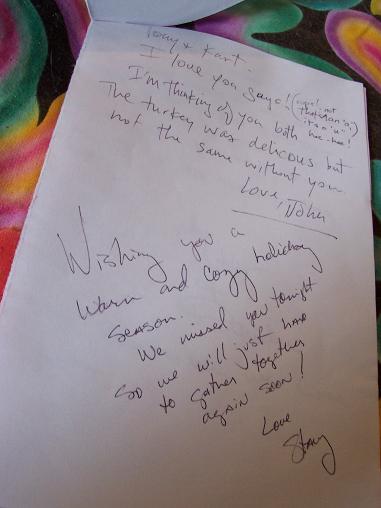 I love you guys! (oops! not
that's an "a"
it's a "u"
hee-hee!
I'm thinking of you both
The turkey was delicous but
not the same without you.
Love,
Wishing you a
warm and cozy holiday
season.
We missed you tonight
so we will just have
to gather together
again soon!
Love